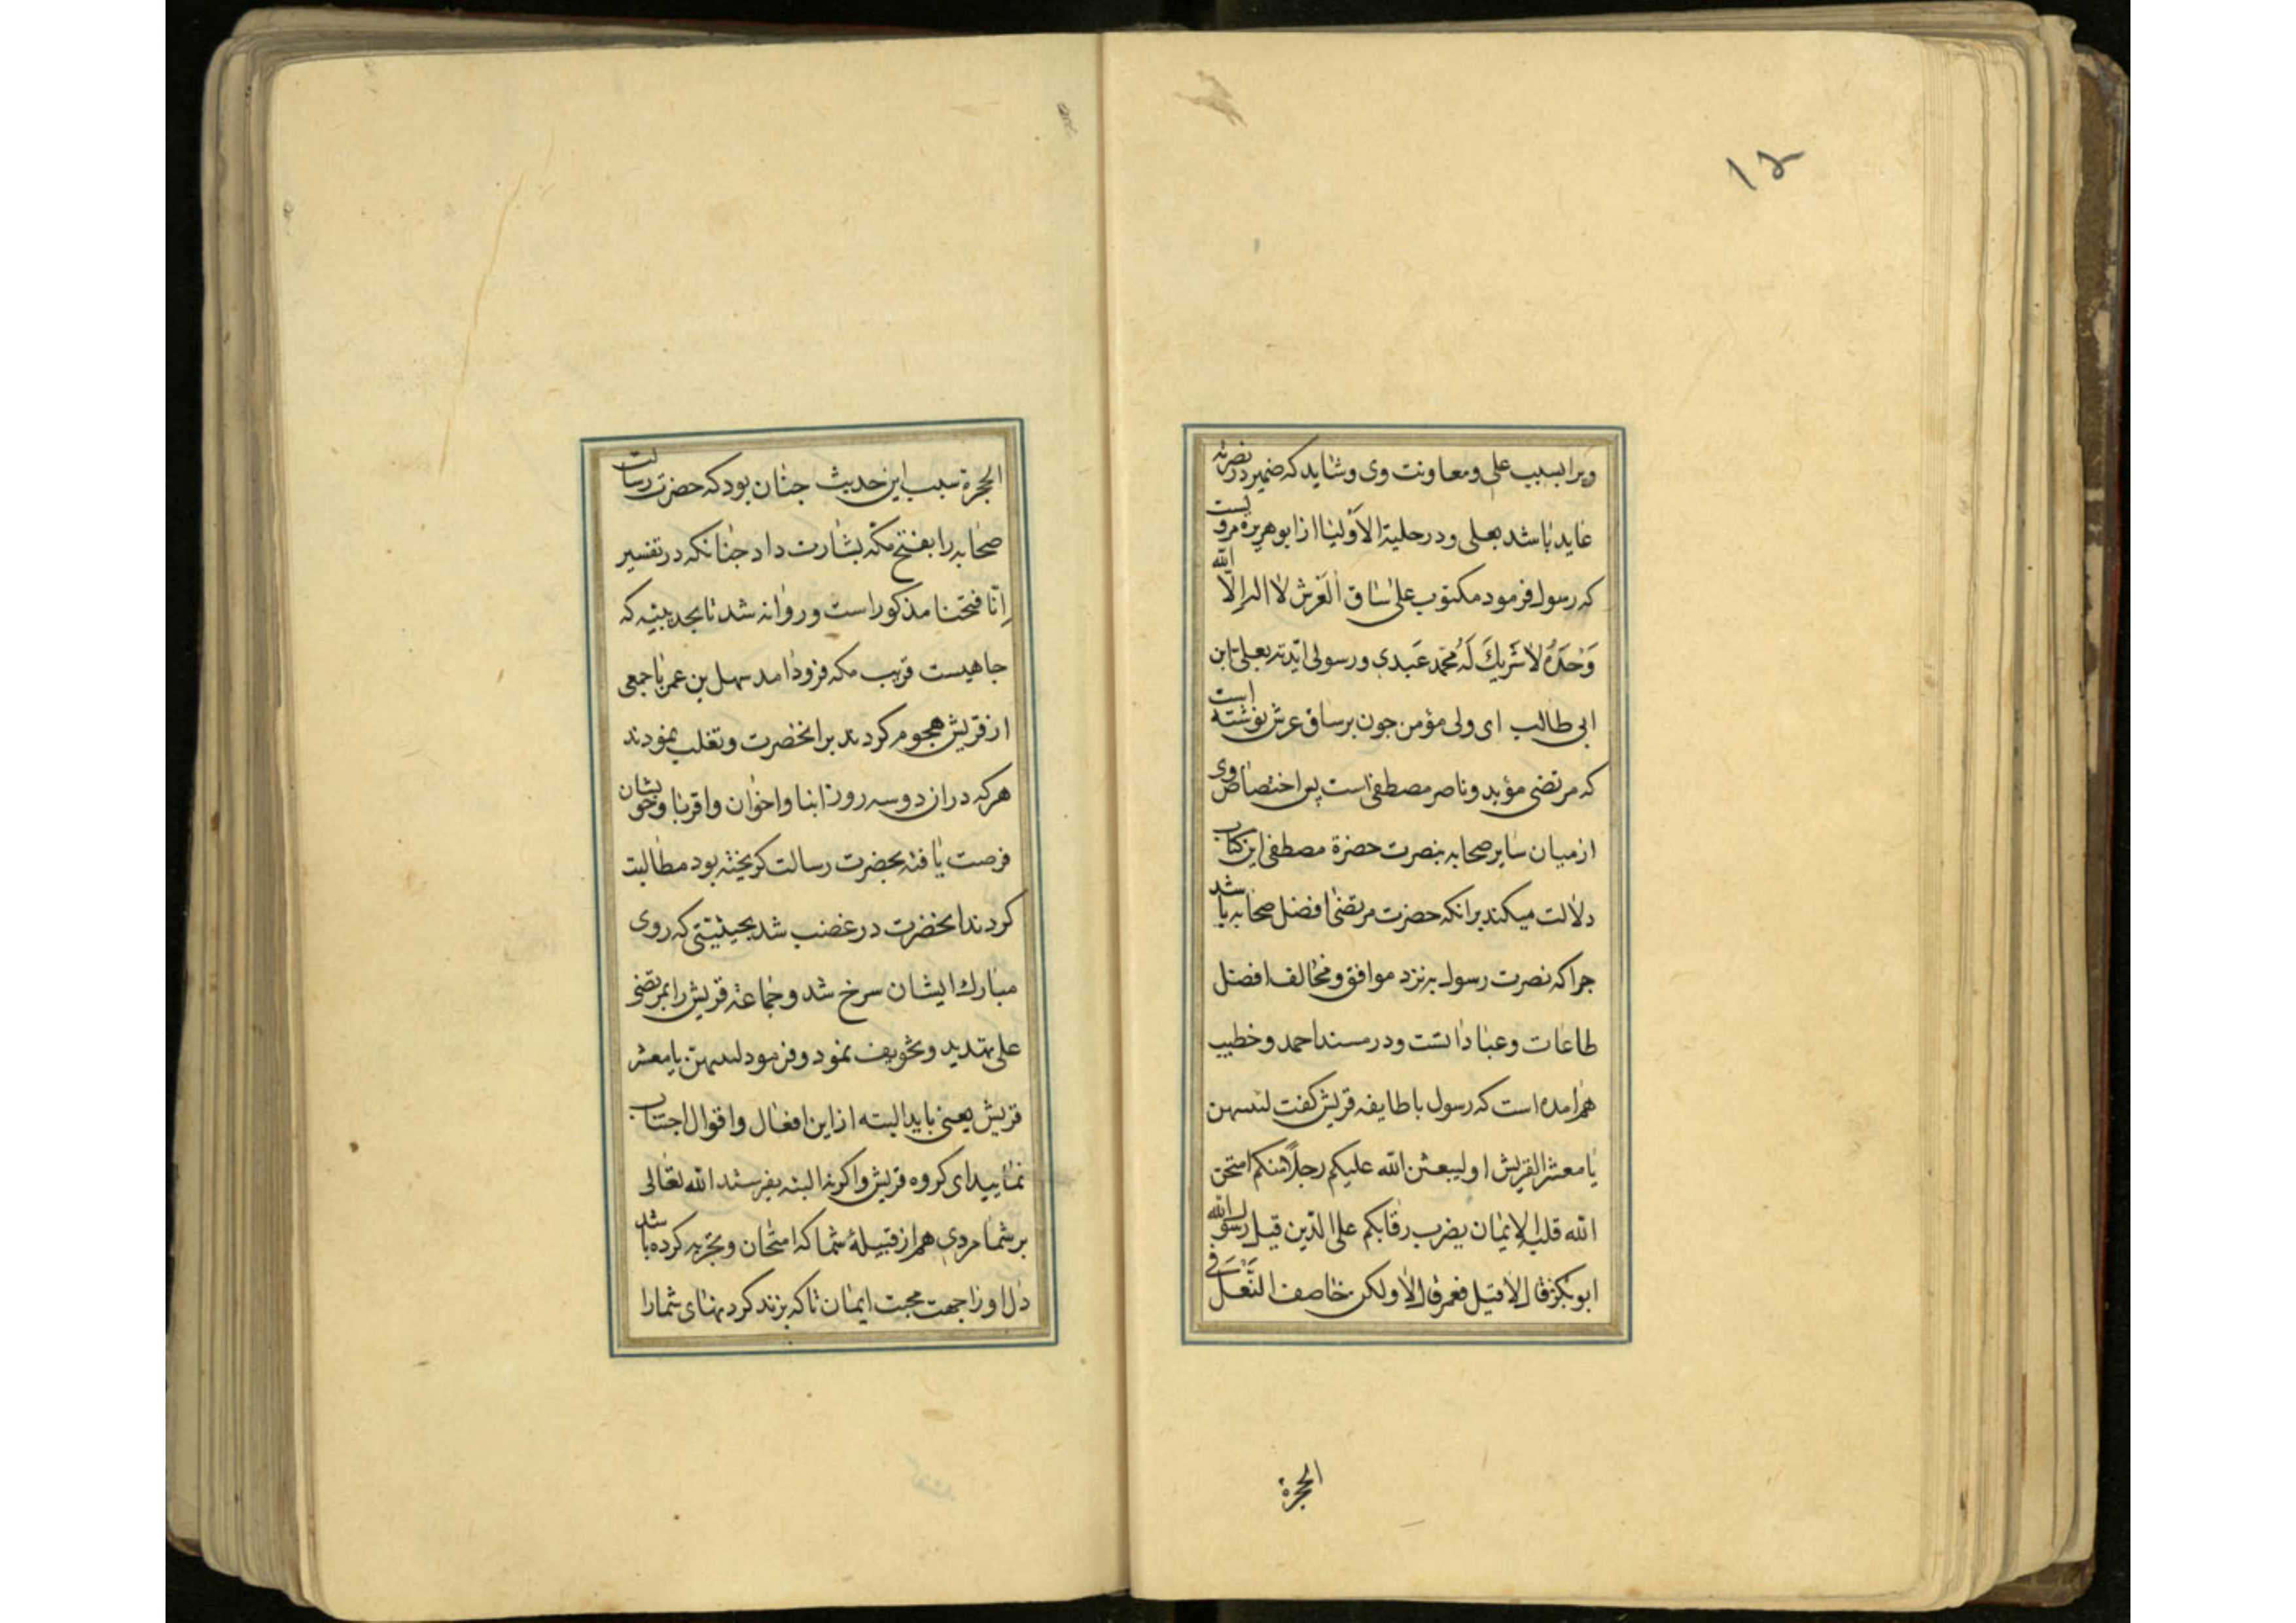 ۱۵
ویرا بسبب علی ومعاونت وی وشاید که ضمیر در نصرته
عاید باشد بعلی ودر حلیة الاولیا از ابوهریره مرویست
که رسول فرمود مکتوب علی ساق العرش لا اله الا الله
وَحدَهُ لا شَریكَ لَهُ محمّد عَبدی ورسولی ایّدته بعلی بن
ابی طالب ای ولی مؤمن جون بر ساق عرش نوشته است
که مرتضی مؤید وناصر مصطفی است پس اختصاص وی
از میان سایر صحابه بنصرت حضرة مصطفی این کتاب
دلالت میکند برانکه حضرت مرتضی افضل صحابه باشد
جرا که نصرت رسول بنزد موافق ومخالف افضل
طاعات وعباداتست ودر مسند احمد وخطیب
هم امده است که رسول با طایفه قریش کفت لتنتهن
یا معشر القریش او لیبعثن الله علیکم رجلاً منکم امتحن
الله قلبه للایمان یضرب رقابکم علی الدّین قیل رسول الله
ابوبکر قال لا قیل فعمر قال لا ولکن خاصف النّعل فی
الحجرة
الحجرة سبب این حدیث جنان بود که حضرت رسالت
صحابه را بفتح مکّه بشارت داد جنانکه در تفسیر
اِنّا فتحنا مذکور است وروانه شد تا بحدیبیه که
جاهیست قریب مکه فرود امد سهل بن عمر با جمعی
از قریش هجوم کردند بر انحضرت وتغلب نمودند
هرکه دران دو سه روز ابنا واخوان واقربا وخویشان
فرصت یافته بحضرت رسالت کریخته بود مطالبت
کردند انحضرت در غضب شد بحیثیتی که روی
مبارك ایشان سرخ شد وجماعة قریش را بمرتضی
علی تهدید وتخویف نمود وفرمود لتنتهن یا معشر
قریش یعنی باید البته از این افعال واقوال اجتناب
نمایید ای کروه قریش واکرنه البته بفرستد الله تعالی
بر شما مردی هم از قبیلهٔ شما که امتحان وتجربه کرده باشد
دل او را جهت محبت ایمان تا که بزند کردنهای شما را